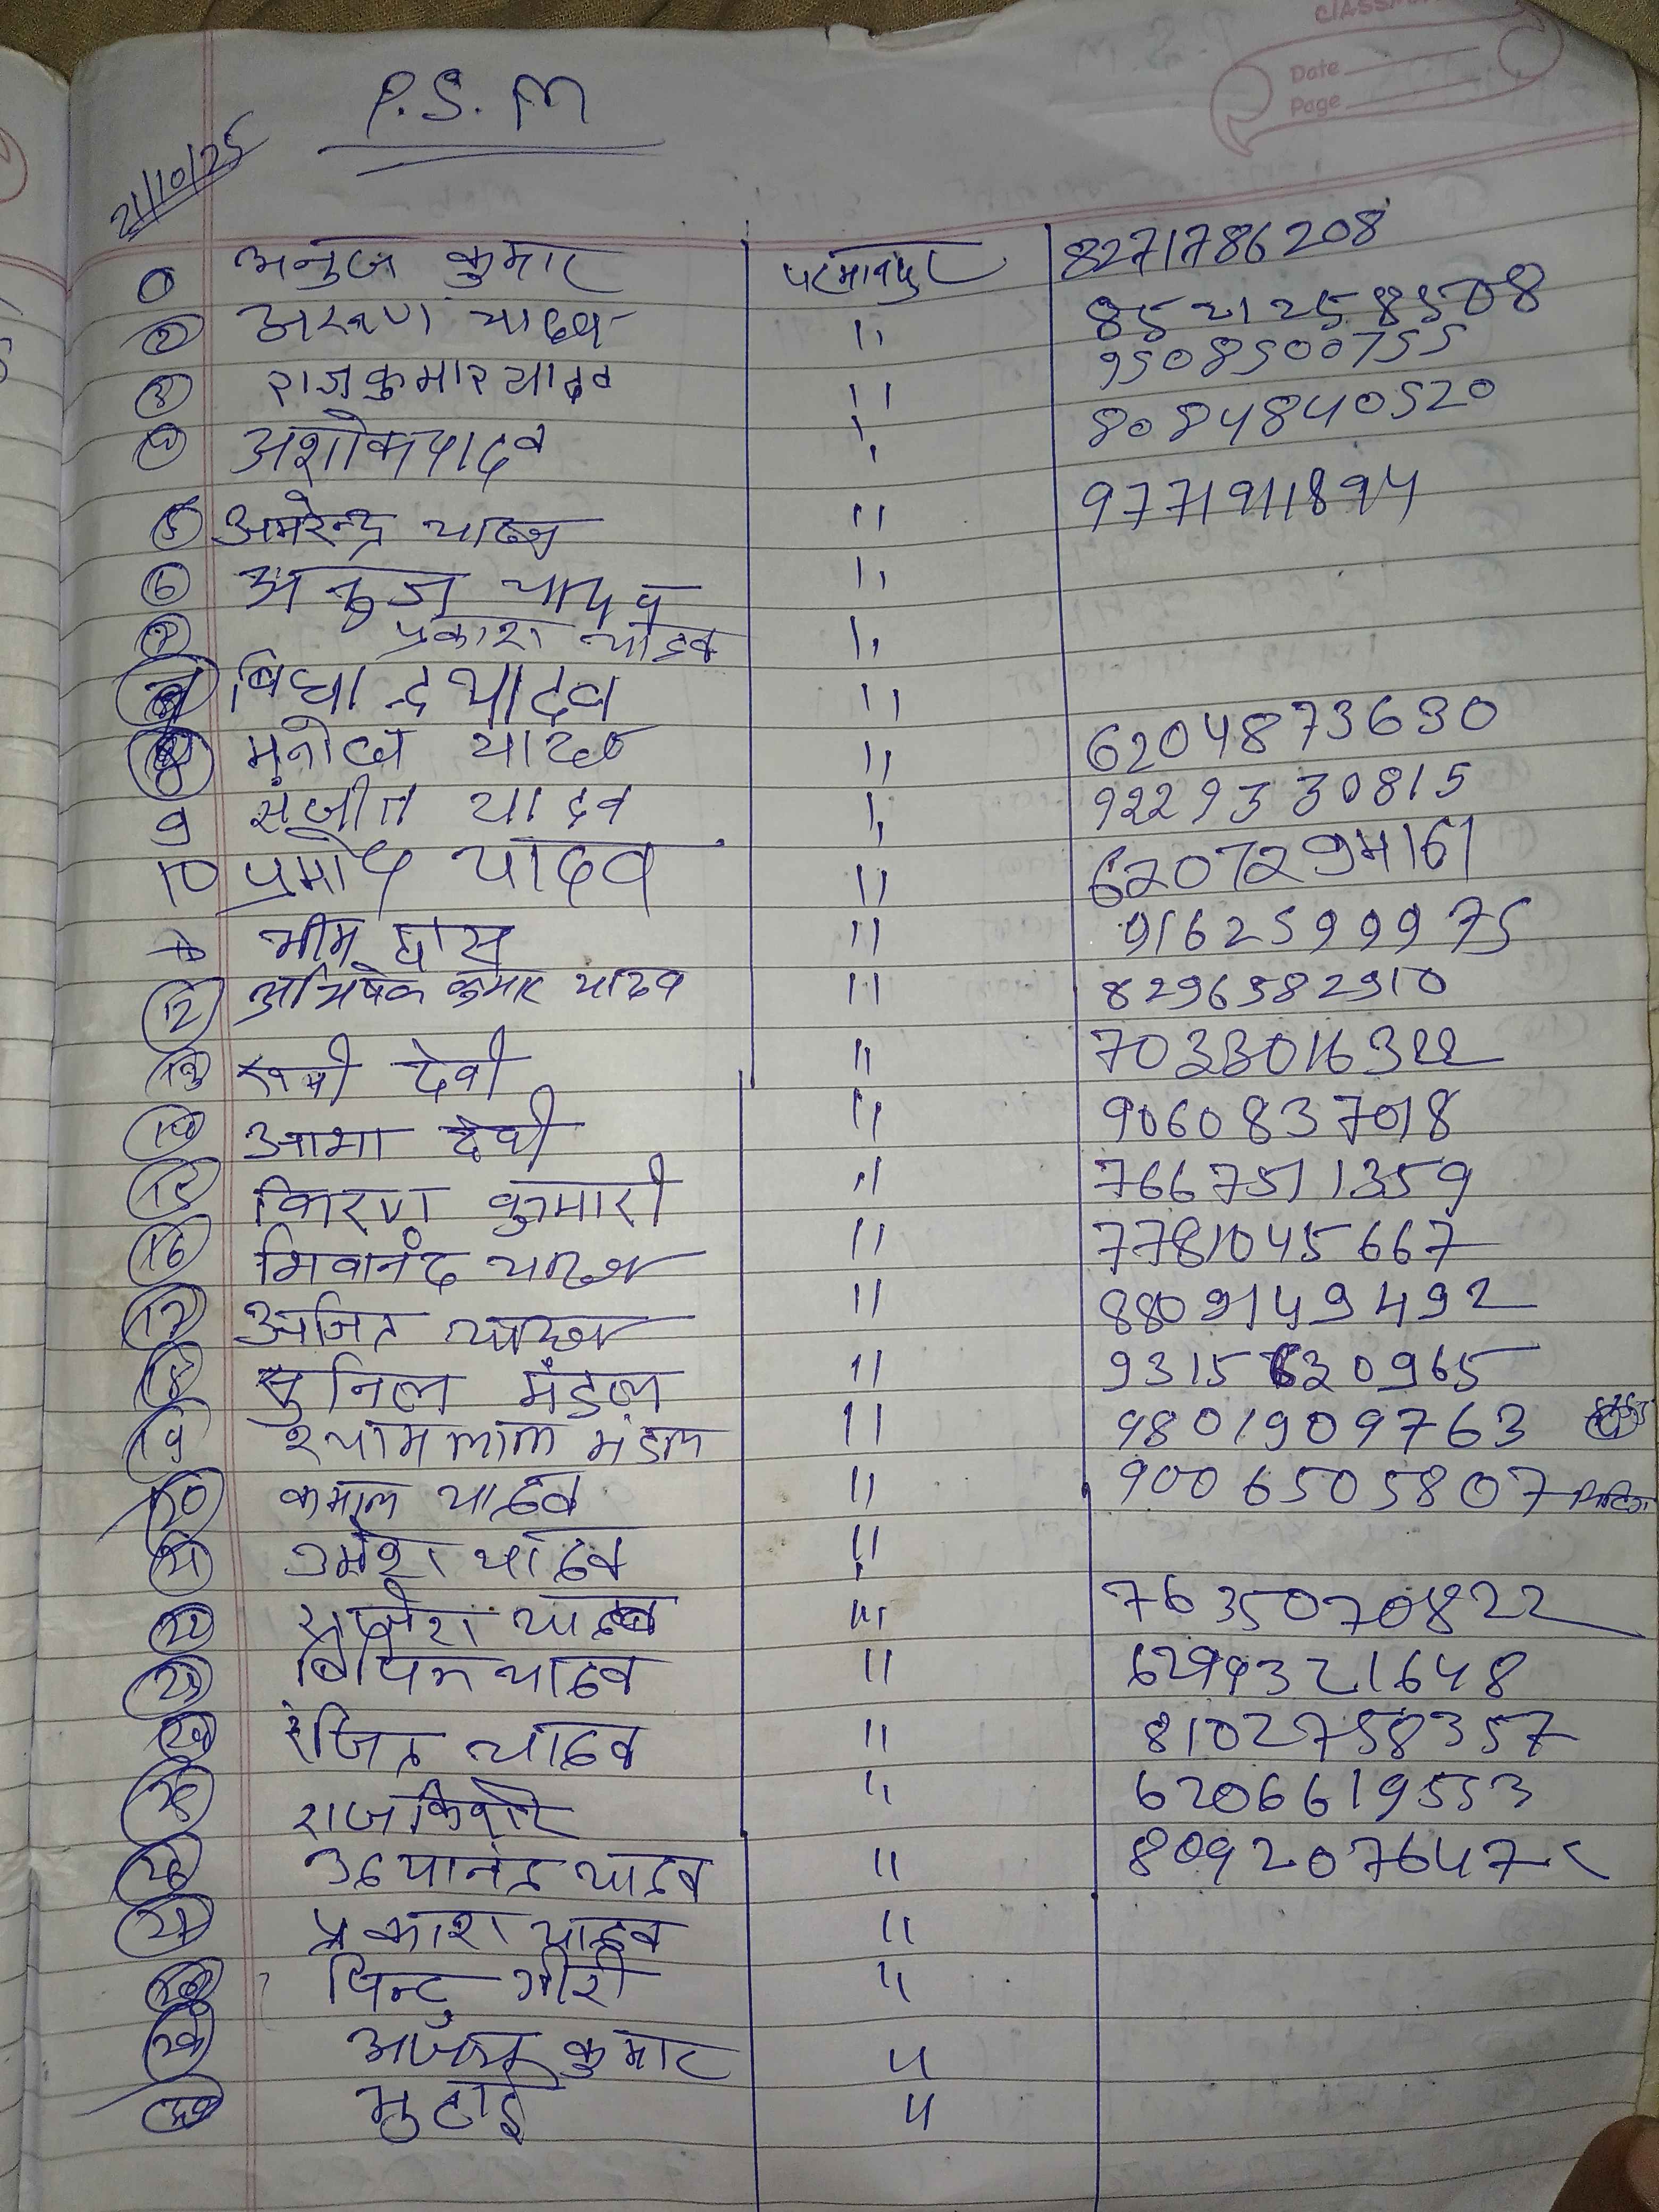 CLASSM
Date
Page
P.S.M
21/10/25
① अनुज कुमार परमानपुर 8271786208
② अरुण यादव " 8521258508
③ राजकुमार यादव " 9508500755
④ अशोक यादव " 8084840520
⑤ अमरेन्द्र यादव " 9771911894
⑥ अनुज यादव "
⑦ प्रकाश यादव "
यादव "
⑧ मनोज यादव " 6204873630
9 संजीत यादव " 9229330815
10 प्रमोद यादव "
भीम दास " 9162599975
⑫ अभिषेक कुमार यादव " 8296582910
⑬ रूबी देवी " 7033016322
⑭ आभा देवी " 9060837018
⑮ किरण कुमारी " 7667511359
⑯ शिवानंद यादव " 7781045667
⑰ अजित यादव " 8809149492
⑱ सुनिल मंडल " 9315630965
⑲ श्यामलाल मंडल " 9801909763
⑳ कमल यादव " 9006505807
㉑ उमेश यादव "
㉒ राजेश यादव " 7635070822
㉓ बिपिन यादव " 6299321648
㉔ रंजित यादव " 8102758357
㉕ राजकिशोर " 6206619553
㉖ उदयानंद यादव " 8092076477
㉗ प्रकाश यादव "
㉘ पिन्टु गीरी "
㉙ कुमार "
"